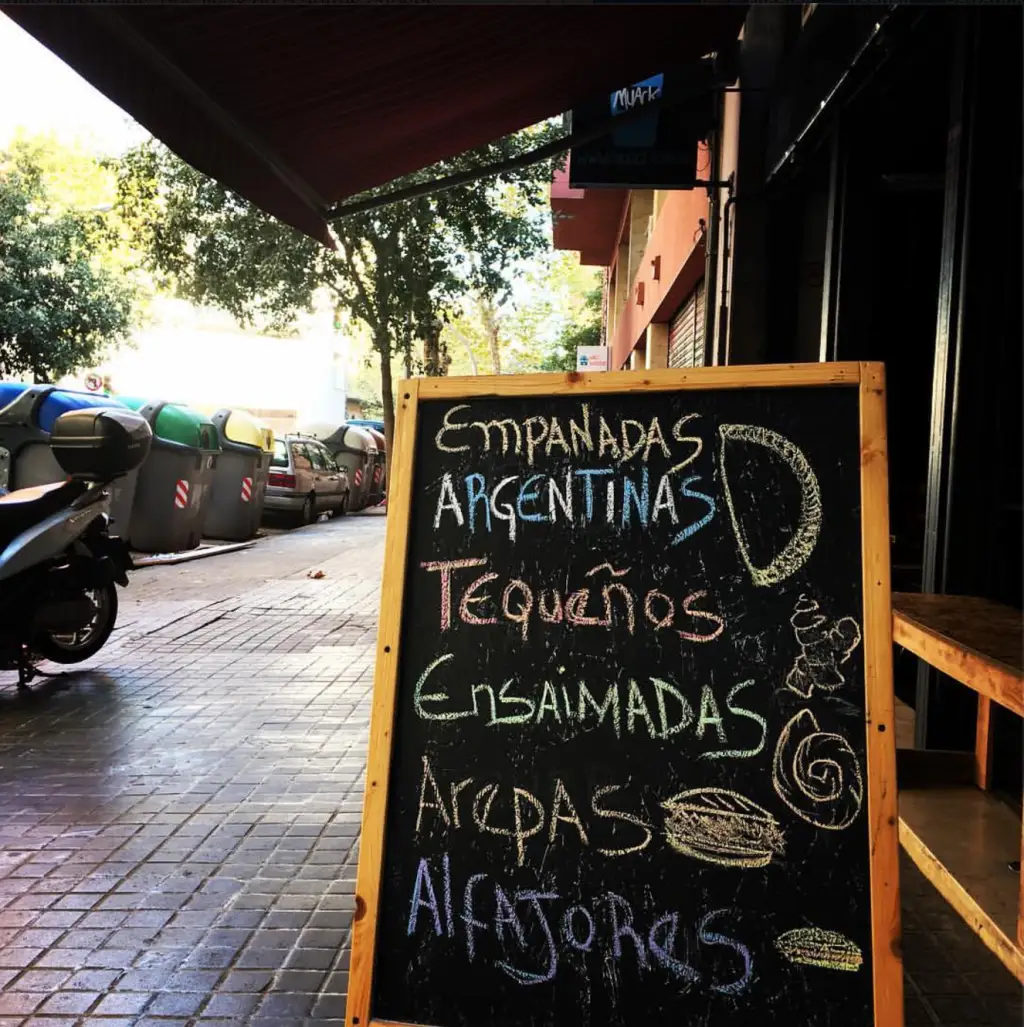 Muark
EMPAÑADAS
ARGENTINAS
TEQUEÑOS
ENSAIMADAS
AREPAS
ALFAJORES